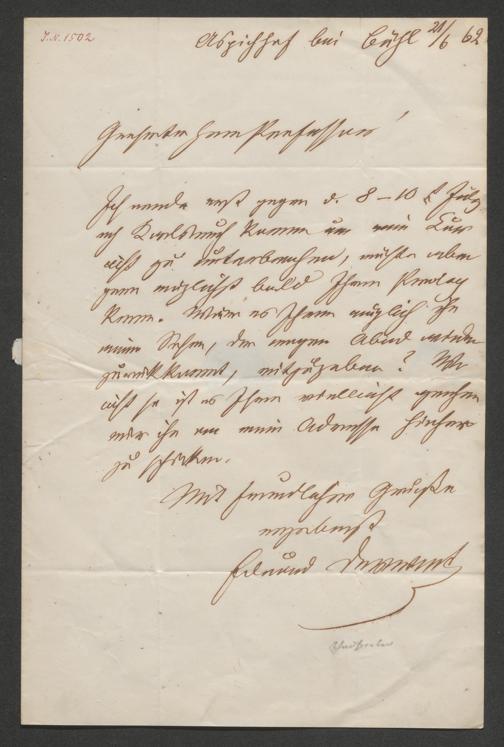 J.N. 1502
Aspichhof bei Bühl 21/6 62
Geehrter Herr Professor!
Ich werde erst gegen d. 8-10t July
nach Karlsruh komme um mein Kur
nicht zu unterbrechen, möchte aber
gern möglichst bald Ihren Prolog
kennen. Wäre es Ihnen möglich ihn
meinem Sohn, der morgen Abend wieder
zurückkommt, mitzugeben? Wo
nicht so ist es Ihnen vielleicht genehm
mir ihn an mein Adresse hierher
zu schicken.
Mit freundlichem Gruße
ergebenst
Eduard Devrient